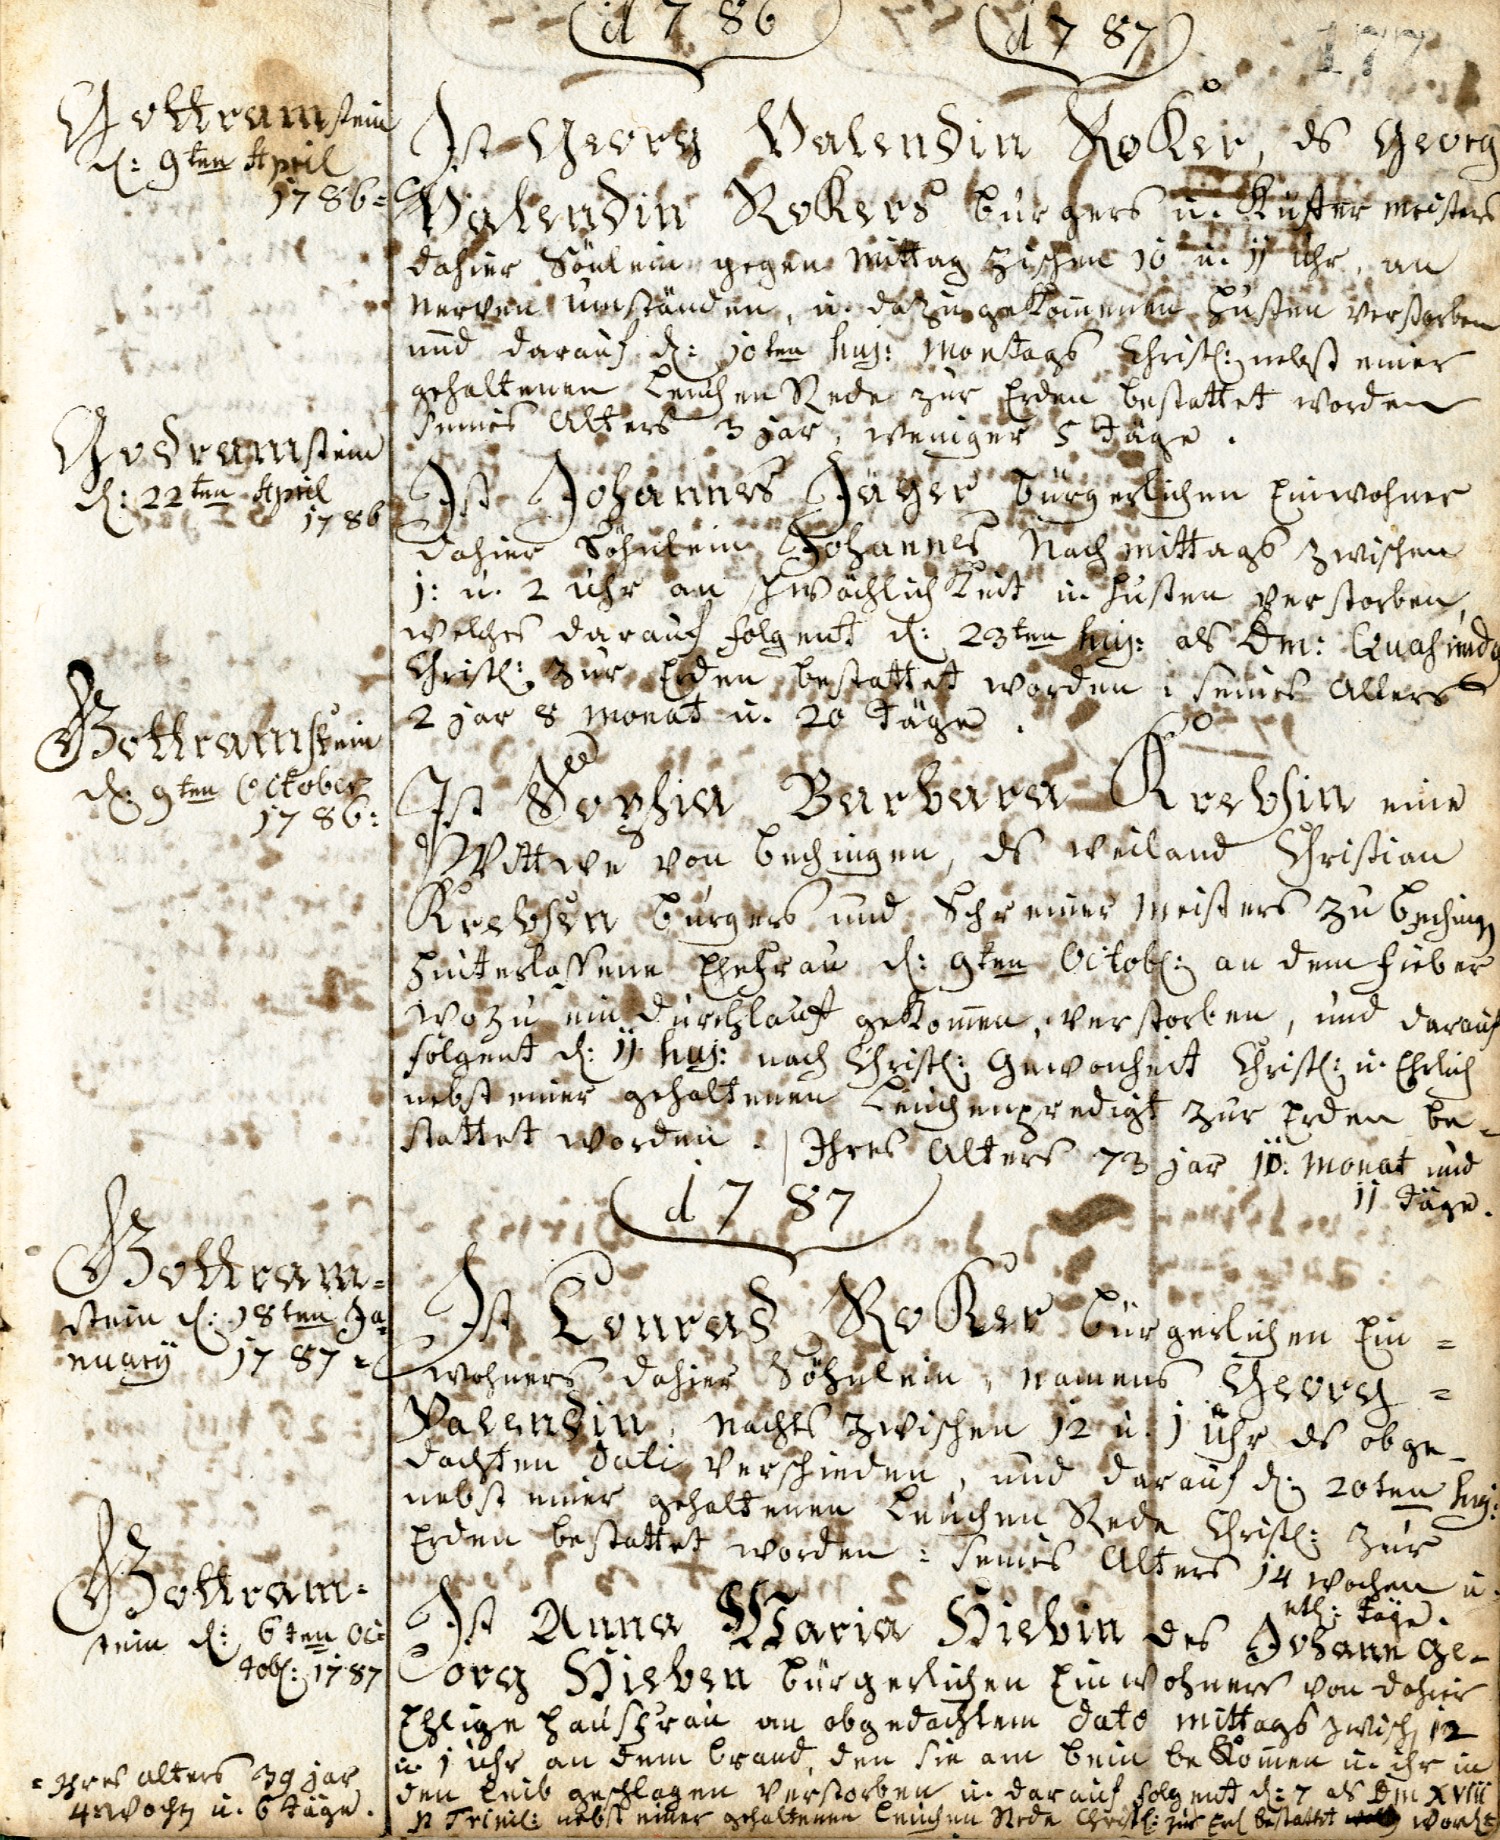 1786 1787
177
Gottramstein
d: 9ten April
1786=
Ist Georg Valendin RoKer, ds Georg
Valendin RoKers burgers u. Küffer meisters
dahier Sönlein gegen Mittag zischen 10 u. 11 Uhr, an
Nerven umständen, u. dazu gekommenen Husten verstorben
und darauf d: 10ten huj: Montags Christl: nebst einer
gehaltenen Leuchen Rede zur Erden bestattet worden
seines Alters 3 jar, weniger 5 täge.
Godramstein
d: 22ten April
1786
Ist Johannes Jäger bürgerlichen Einwohner
dahier Söhnlein Johannes Nach mittags zwischen
1: u. 2 uhr an schwächlichKeit u. Husten verstorben,
welches darauf folgent d: 23ten huj: als Dm: Quasimdo
Christl: zur Erden bestattet worden: seines Alters
2 jar 8 monat u. 20 täge.
Gottramstein
d: 9ten October
1786:
Ist Sophia Barbara Krebsin eine
Wittwe von bechingen, ds weiland Christian
Krebsen bürgers und Schreiner Meisters zu bechingen
hinterlassene Ehefrau d: 9ten Octob: an dem Fieber
wozu ein durchlauf geKommen, verstorben, und darauf
folgent d: 11 huj: nach Christl: Gewonheit Christl: u. Ehrlich
nebst einer gehaltenen Leuchenpredigt zur Erden be=
stattet worden. Ihres Alters 73 jar 10: monat und
11 täge.
1787
Gottram=
stein d: 18ten Ja=
nuarij 1787=
Ist Conrad RoKer bürgerlichen Ein=
wohners dahier Söhnlein, namens Georg=
Valendin, Nachts zwischen 12 u. 1 Uhr ds obge=
dachten Dati verschieden, und darauf d: 20ten huj:
nebst einer gehaltenen Leuchen Rede Christl: zur
Erden bestattet worden: seines Alters 14 wochen u.
etl: täge.
Gottram=
stein d: 6ten Oc=
tob: 1787
Ist Anna Maria Hiebin des Johann Ge=
org Hieben bürgerlichen Einwohners von dahier
Ehlige hausfrau an obgedachtem dato mittags zwisch 12
u. 1 uhr an dem brand, den sie am bein beKommen u. ihr in
den Leib geschlagen verstorben u. darauf folgent d: 7 als Dm XVIII
p Trinit: nebst einer gehaltenen Leuchen Rede Christl: zur Erd bestattet word:
= Ihres alters 39 jar
4 woch u. 6 täge.